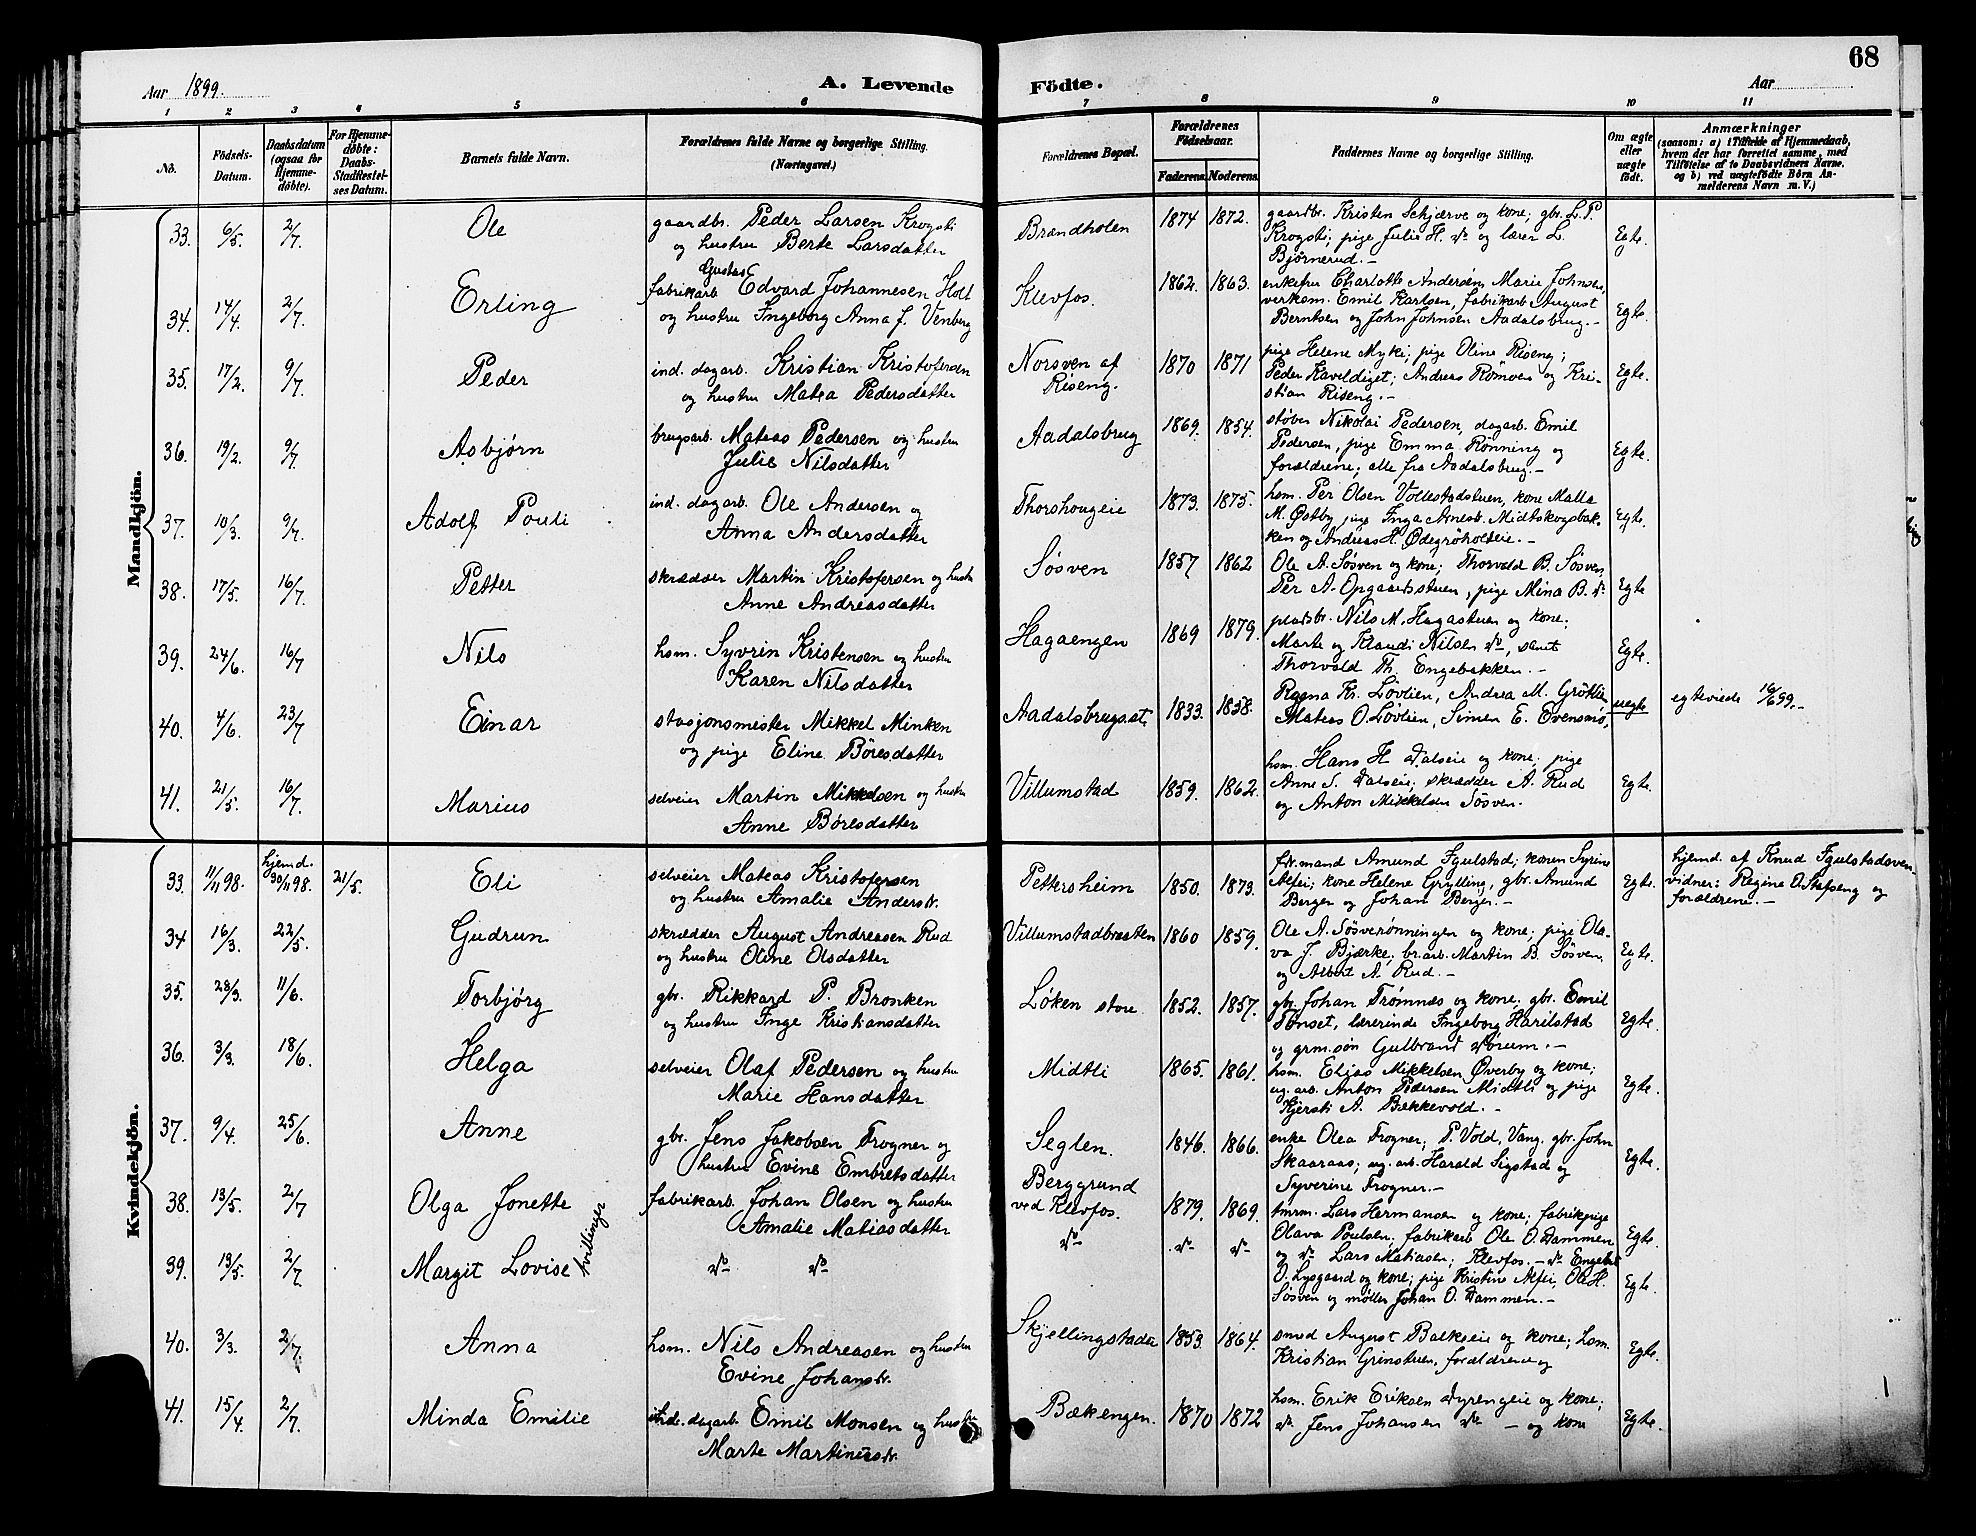 68
Aar 1899.
A. Levende Födte.
Aar
1 2 3 4 5 6 7 8 9 10 11
No.
Födsels-Datum.
Daabsdatum (ogsaa for Hjemmedöbte).
For Hjemmedöbte: Daabs-Stadfæstelses Datum.
Barnets fulde Navn.
Forældrenes fulde Navne og borgerlige Stilling. (Næringsvei.)
Forældrenes Bopæl.
Forældrenes Födselsaar.
Faderens. Moderens.
Faddernes Navne og borgerlige Stilling.
Om ægte eller uægte födt.
Anmærkninger
(saasom: a) i Tilfælde af Hjemmedaab, hvem der har forrettet samme, med Tilföielse af to Daabsvidners Navne, og b) ved uægtefödte Börn Anmelderens Navn m. V.)
Mandkjön.
33. 6/5. 2/7. Ole
gaardbr. Peder Larsen Krogsti
og hustru Berte Larsdatter
Brændholen 1874 1872.
gaardbr. Kristen Schjærve og kone; gbr. L. P.
Krogsti; pige Julie H. do og lærer L.
Bjørnerud.-
Egte.
34. 14/4. 2/7. Erling
Gustav
fabrikarb Edvard Johannesen Holt
og hustru Ingeborg Anna J. Venberg
Klevfos. 1862. 1863.
enkefru Charlotte Andersen, Marie Johnsen,
verksm. Emil Karlsen, fabrikarb August
Berntsen og John Johnsen Aadalsbrug.-
Egte.
35. 17/2. 9/7. Peder
ind. dagarb. Kristian Kristofersen
og hustru Matea Pedersdatter
Norsven af
Riseng.
1870 1871
pige Helene Myki; pige Oline Riseng;
Peder Kaveldiget; Andreas Rømoen og Kri-
stian Riseng.-
Egte.
36. 19/2. 9/7. Asbjørn
brugsarb. Mateas Pedersen og hustru
Julie Nilsdatter
Aadalsbrug 1869. 1854.
støber Nikolai Pedersen, dagarb. Emil
Pedersen, pige Emma Rønning og
forældrene; alle fra Aadalsbrug.-
Egte.
37. 10/3. 9/7. Adolf Pouli
ind. dagarb. Ole Andersen og
Anna Andersdatter
Thorshougeie 1873. 1875.
hsm. Per Olsen Vollestadstuen, kone Malla
M. Østby, pige Inga Arnestr. Midtskogsbak-
ken og Andreas H. Ødegröholteie.-
Egte.
38. 17/5. 16/7. Petter
skrædder Martin Kristofersen og hustru
Anne Andreasdatter
Søsven 1857 1862
Ole A. Søsven og kone; Thorvald B. Søsven,
Per A. Opgaardsstuen, pige Mina B. do
Egte
39. 24/6. 16/7 Nils
hsm. Syvrin Kristensen og hustru
Karen Nilsdatter
Hagaengen 1869 1879.
pladsbr. Nils M. Hagastuen og kone;
Marte og Klaudi Nilsen do, samt
Thorvald Th. Engebakken.-
Egte.
40. 4/6. 23/7 Einar
stasjonsmester Mikkel Minken
og pige Eline Böresdatter
Aadalsbrugs.st. 1833. 1858.
Ragna Kr. Løvlien, Andrea M. Gröttlie
Mateas O. Løvlien, Simen E. Evensmo,
uegte
egteviede 16/6 99.-
41. 21/5. 16/7. Marius
selveier Martin Mikkelsen og hustru
Anne Böresdatter
Villumstad 1859. 1862.
hsm. Hans H Dalseie og kone; pige
Anne S. Dalseie; skrædder A. Rud
og Anton Mikkelsen Søsven.
Egte.
Kvindekjön.
33. 11/11 98. hjemd. 30/11 98. 21/5. Eli
selveier Mateas Kristofersen
og hustru Amalie Anderstr.
Pettersheim 1850. 1873.
fv.mand Amund Igulstad; konen Syrine
Alfei; kone Helene Grylling, gbr. Amund
Berger og Johan Berger.-
Egte.
hjemd. af Knud Igulstadsven
vidner: Regine O. Stafseng og
forældrene.-
34 16/3. 22/5. Gudrun
skrædder August Andreasen Rud
og hustru Oline Olsdatter
Villumstadbraaten 1860 1859.
Ole A. Søsverønningen og kone; pige Ola-
va J. Bjærke, br.arb. Martin B. Søsven,
og Albert A. Rud.-
Egte.
35. 23/3. 11/6. Torbjørg
gbr. Rikkard P. Bronken
og hustru Inge Kristiansdatter
Løken store 1852. 1857.
gbr. Johan Trømnæs og kone; gbr. Emil
Tønset, lærerinde Ingeborg Harilstad
og grm.søn Gulbrand Vorum.-
Egte.
36. 3/3. 18/6. Helga
selveier Olaf Pedersen og hustru
Marie Hansdatter
Midtli 1865. 1861.
hsm. Elias Mikkelsen Øverby og kone;
ug. arb. Anton Pedersen Midtli og pige
Kjersti A. Bækkevold.-
Egte.
37. 9/4. 25/6. Anne
gbr. Jens Jakobsen Frogner og
hustru Evine Embretsdatter
Seglen. 1846. 1866.
enke Olea Frogner; P. Vold, Vang. gbr. John
Skaaraas; ug. arb. Harald Sigstad og
Syverine Frogner.-
Egte.
38. 13/5. 2/7 Olga Jonette
tvillinger
fabrikarb. Johan Olsen og hustru
Amalie Matiasdatter
Berggrund
ved Klevfos.
1879. 1869.
tmrm. Lars Hermansen og kone; fabrikpige
Olava Poulsen; fabrikarb Ole O. Dammen
og do Lars Matiasen; Klevfos.- do Engebret
Egte.
39. 13/5. 2/7. Margit Lovise
do do
do do do
O. Lysgaard og kone; pige Kristine Alfei, Ole H.
Søsven og møller Johan O. Dammen.-
Egte.
40. 3/3. 2/7 Anna
hsm. Nils Andreasen og hustru
Evine Johanstr.
Skjellingstadei 1853. 1864.
smed Augerst Balkseie og kone; hsm.
Kristian Grinstuen, forældrene og
Egte.
41. 15/4 2/7. Minda Emilie
ind. dagarb. Emil Monsen og hustru
Marte Martinestr.
Bækengen. 1870 1872
hsm. Erik Eriksen Dyrengeie og kone;
do Jens Johansen do - og kone
Egte.